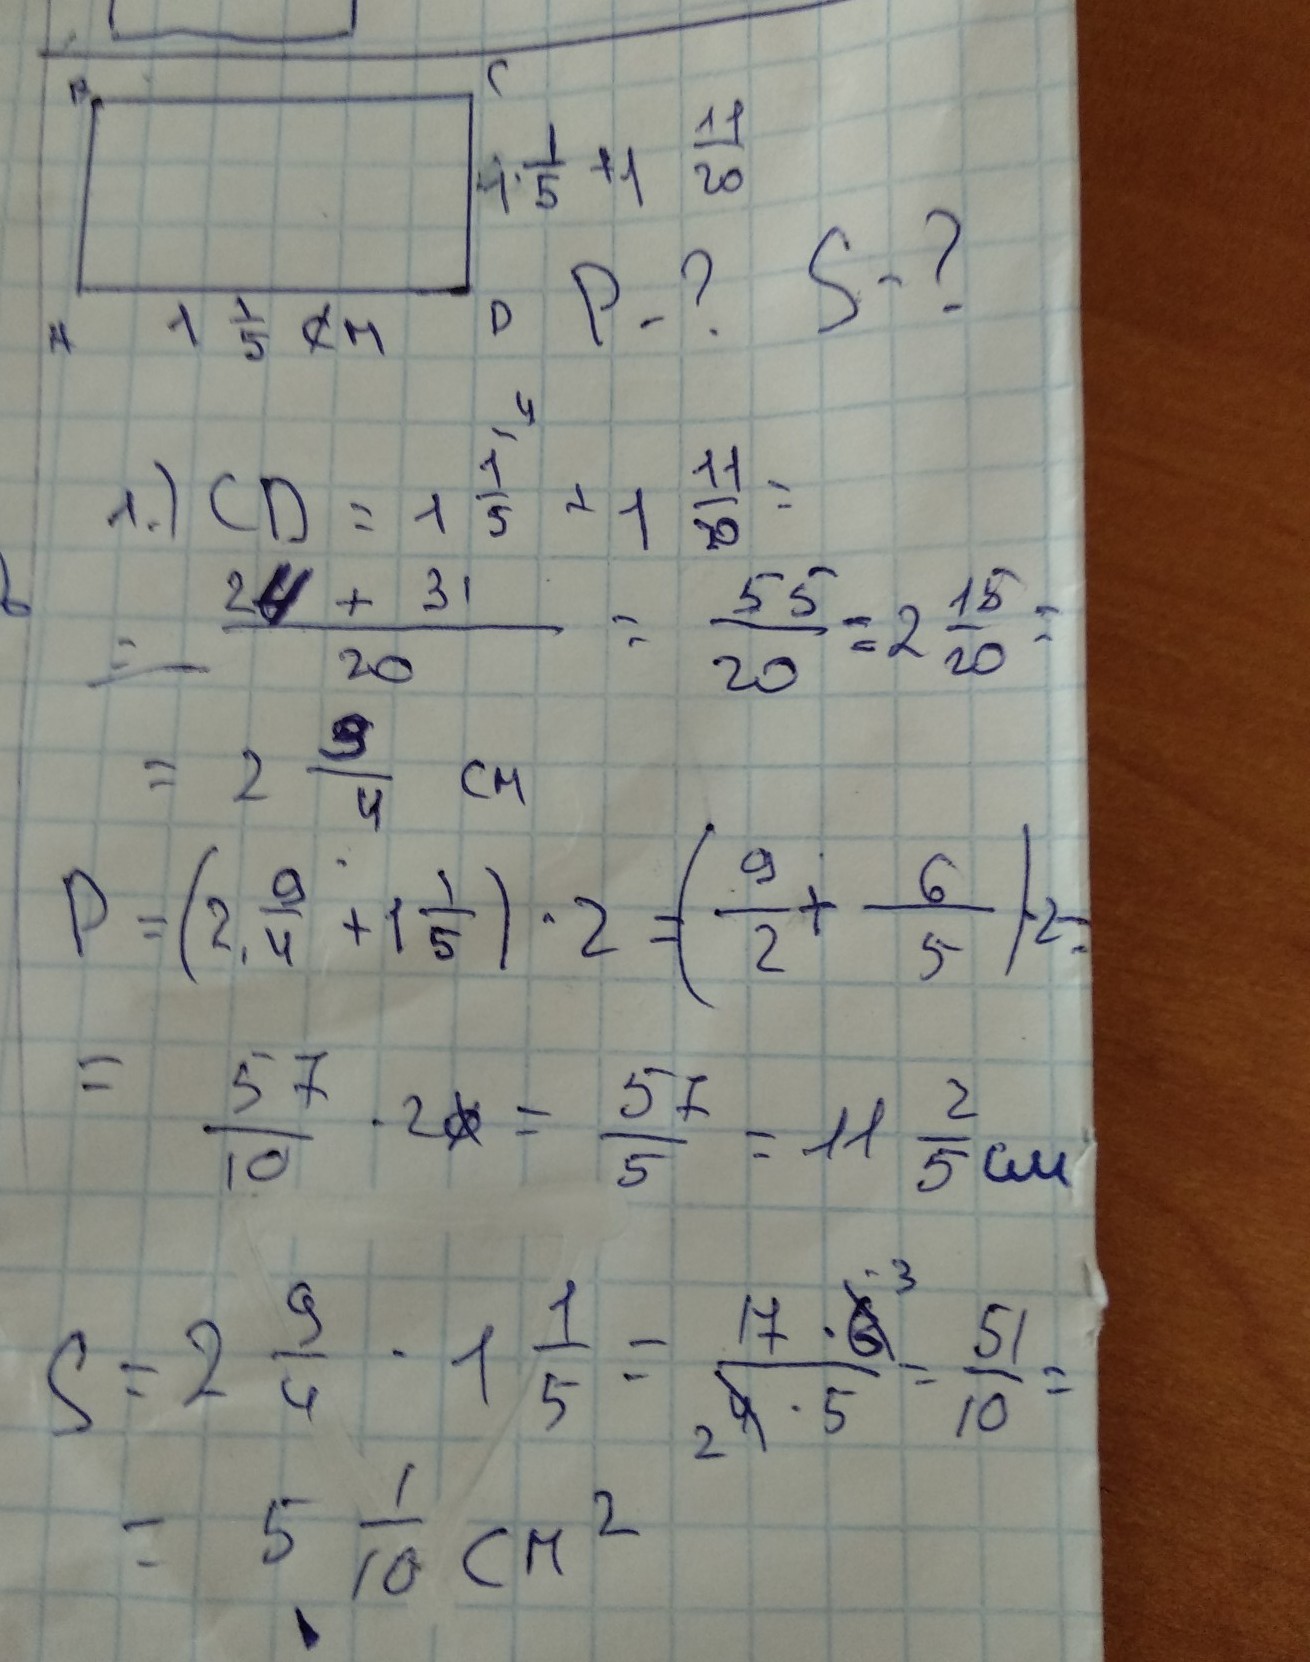 C
1 1/5 + 1 11/20
P - ? S - ?
A 1 1/5 см D
1.) CD = 1 1/5 ⁴ + 1 11/20 =
= (24 + 31)/20 = 55/20 = 2 15/20 =
= 2 9/4 см
P = (2 9/4 + 1 1/5) · 2 = (9/2 + 6/5) · 2 =
= 57/10 · 2 = 57/5 = 11 2/5 см
S = 2 9/4 · 1 1/5 = (17 · 6 ³)/(₂ 4 · 5) = 51/10 =
= 5 1/10 см²